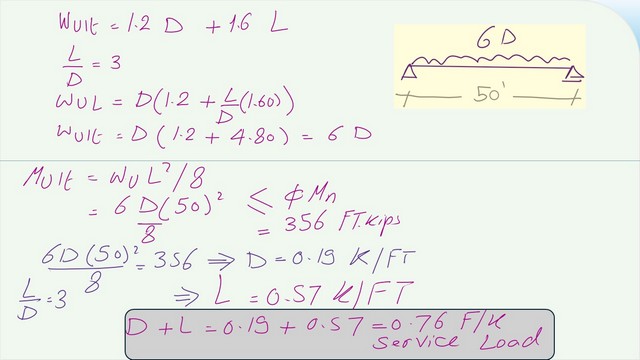 Wult = 1.2 D + 1.6 L
L/D = 3
WUL = D(1.2 + L/D(1.60))
Wult = D(1.2 + 4.80) = 6 D
6 D
50'
Mult = WUL²/8
= 6D(50)²/8 ≤ ɸMn
= 356 FT.kips
6D(50)²/8 = 356 ⇒ D = 0.19 K/FT
L/D = 3 ⇒ L = 0.57 K/FT
D + L = 0.19 + 0.57 = 0.76 F/K
service Load